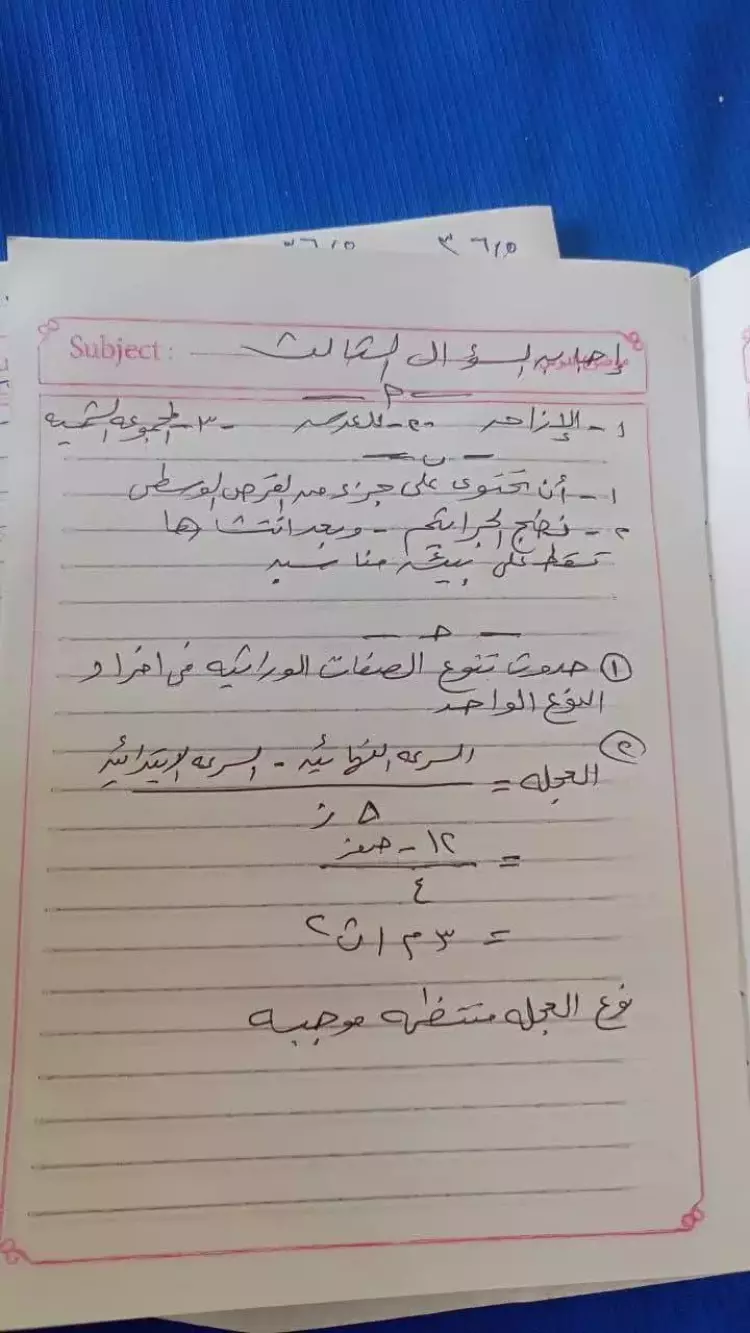 ٣٦/٥ ٢٦/٥
Subject: إجابة السؤال الثالث
- م -
١- الإزاحة ٢- العدسة ٣- المجموعة الشمسية
- ب -
١- أن تحتوى على جزء من القرص الوسطى
٢- نضج الجراثيم - وبعد انتشارها
تسقط على بيئة مناسبة
- جـ -
① حدوث تنوع الصفات الوراثيه فى افراد
النوع الواحد
② العجله = السرعه النهائيه - السرعه الابتدائيه
Δ ز
= ١٢ - صفر
٤
= ٣ م / ث٢
نوع العجله منتظمه موجبه